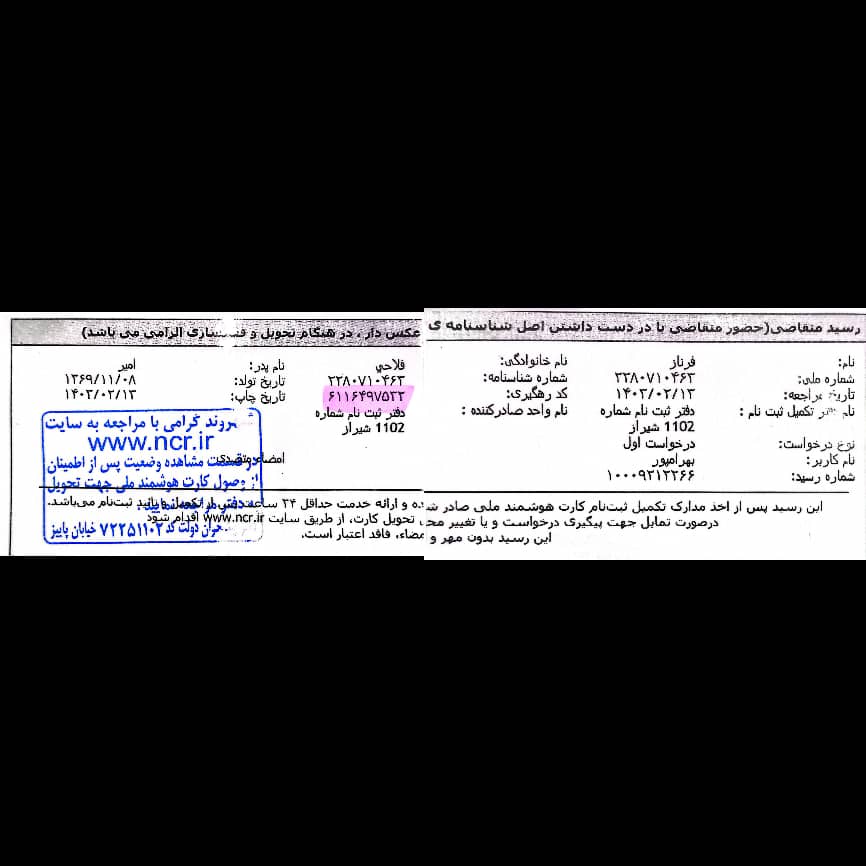 رسید متقاضی(حضور متقاضی با در دست داشتن اصل شناسنامه ی عکس دار ، در هنگام تحویل و الزامی می باشد)
نام: فرناز نام خانوادگی: فلاحي نام پدر: امیر
شماره ملی: ۲۲۸۰۷۱۰۴۶۳ شماره شناسنامه: ۲۲۸۰۷۱۰۴۶۳ تاریخ تولد: ۱۳۶۹/۱۱/۰۸
تاریخ مراجعه: ۱۴۰۳/۰۲/۱۳ کد رهگیری: ۶۱۱۶۴۹۷۵۳۳ تاریخ چاپ: ۱۴۰۳/۰۲/۱۳
نام دفتر تکمیل ثبت نام : دفتر ثبت نام شماره 1102 شیراز نام واحد صادرکننده : دفتر ثبت نام شماره 1102 شیراز
نوع درخواست: درخواست اول
نام کاربر: بهرامپور
شماره رسید: ۱۰۰۰۹۳۱۳۳۶۶
امضاء متصدی
این رسید پس از اخذ مدارک تکمیل ثبت‌نام کارت هوشمند ملی صادر شده و ارائه خدمت حداقل ۲۴ ساعت پس از تکمیل فرایند ثبت‌نام می‌باشد.
درصورت تمایل جهت پیگیری درخواست و یا تغییر تحویل کارت، از طریق سایت www.ncr.ir اقدام شود
این رسید بدون مهر و امضاء، فاقد اعتبار است.
شهروند گرامی با مراجعه به سایت
www.ncr.ir
در قسمت مشاهده وضعیت پس از اطمینان
از وصول کارت هوشمند ملی جهت تحویل
به دفتر مراجعه نمایید.
دولت کد ۷۲۲۵۱۱۰۲ خیابان پاییز